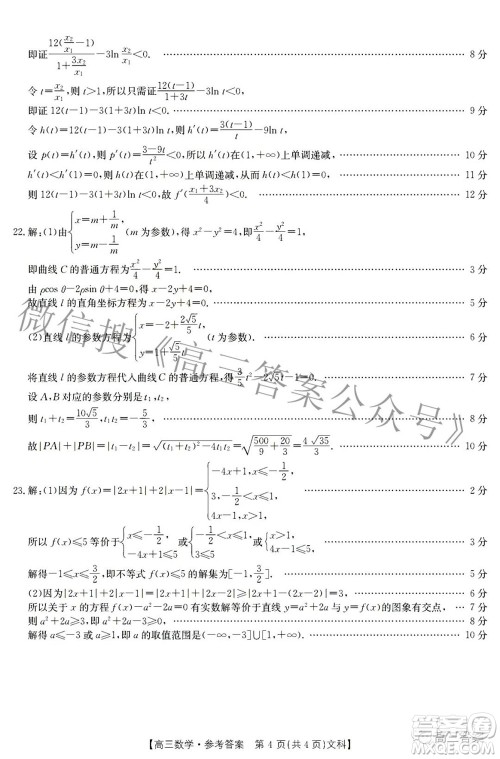 即证12(x₂/x₁-1)/(1+3x₂/x₁)-3ln x₂/x₁<0. 8分
令t=x₂/x₁,则t>1,所以只需证12(t-1)/(1+3t)-3ln t<0.
即证12(t-1)-3(1+3t)ln t<0. 9分
令h(t)=12(t-1)-3(1+3t)ln t,则h′(t)=3(t-1)/t-9ln t,
设p(t)=3(t-1)/t-9ln t,则p′(t)=(3-9t)/t²<0,所以h′(t)在(1,+∞)上单调递减, 10分
h′(t)<h′(1)=0,所以h(t)在(1,+∞)上单调递减,h(t)<h(1)=0, 11分
则12(t-1)-3(1+3t)ln t<0,故f′((x₁+3x₂)/4)<0. 12分
22.解:(1)由{x=m+1/m, y=m-1/m (m为参数),得x²-y²=4,即x²/4-y²/4=1.
即曲线C的普通方程为x²/4-y²/4=1. 3分
由ρcos θ-2ρsin θ+4=0,得x-2y+4=0,
故直线l的直角坐标方程为x-2y+4=0. 5分
(2)直线l的参数方程为{x=-2+2√5/5 t, y=1+√5/5 t (t为参数). 6分
将直线l的参数方程代入曲线C的普通方程,得3/5t²-2√5t-1=0. 7分
设A,B对应的参数分别是t₁,t₂,
则t₁+t₂=10√5/3,t₁t₂=-5/3, 8分
故|PA|+|PB|=|t₁-t₂|=√((t₁+t₂)²-4t₁t₂)=√(500/9+20/3)=4√35/3. 10分
23.解:(1)因为f(x)=|2x+1|+|2x-1|={-4x+1,x≤-1/2, 3,-1/2<x<, 4x≥ 2分
所以f(x)≤5等价于{x≤-1/2, -4x+1≤5 或{-1/2<x<, 3≤5 或{x≥, 4x≤5 4分
解得-1≤x≤3/2,即不等式f(x)≤5的解集为[-1,3/2]. 5分
(2)因为|2x+1|+2|x-1|=|2x+1|+|2x-2|≥|2x+1-(2x-2)|=3, 6分
所以关于x的方程f(x)-a²-2a=0有实数解等价于y=f(x)与y=a²+2a的图象有交点, 7分
则a²+2a≥3, 8分
解得a≤-3或a≥1,即a的取值范围是(-∞,-3]∪[1,+∞). 10分
微信搜《高三答案公众号》
【高三数学·参考答案 第4页(共4页)文科】
高三答案